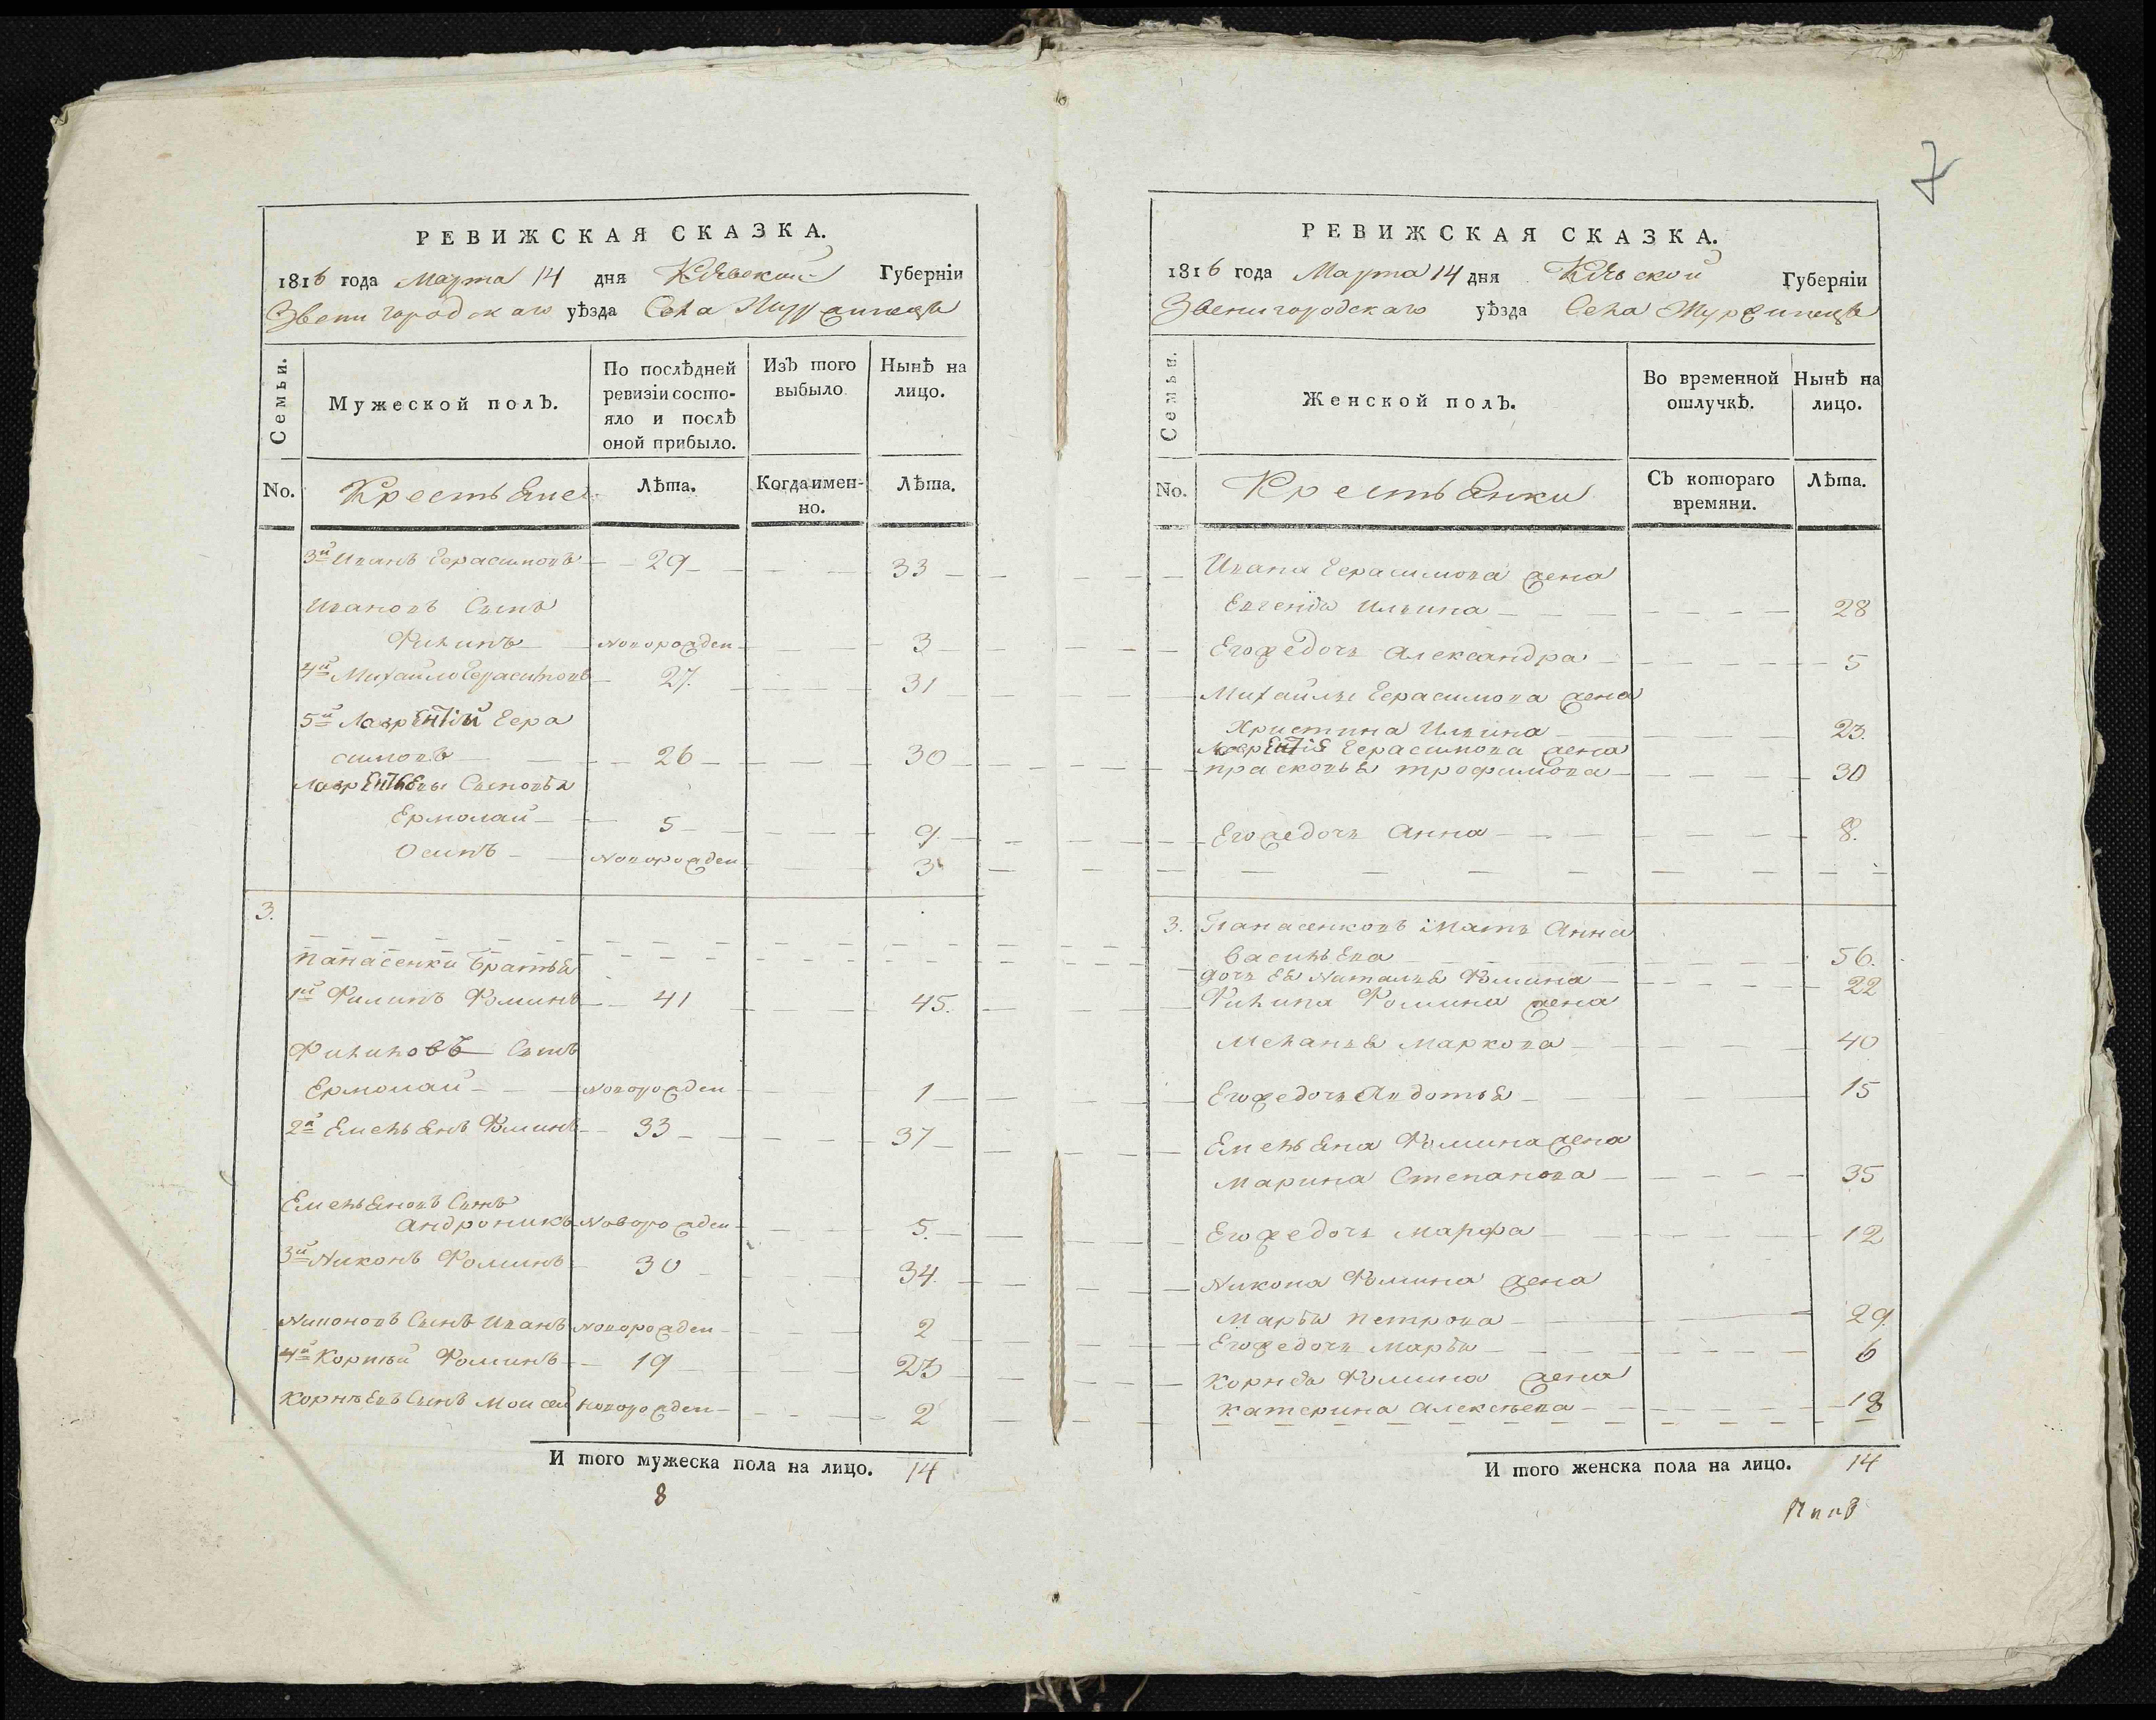 7
РЕВИЖСКАЯ СКАЗКА.
1816 года Марта 14 дня Кіевской Губерніи
Звенигородскаго уѣзда Села Журжинецъ
Семьи.
Мужеской полъ.
По послѣдней ревизіи состо-
яло и послѣ оной прибыло.
Изъ того выбыло
Нынѣ на лицо.
No.
Крестьяне
Лѣта.
Когда имен-
но.
Лѣта.
3й Иванъ Герасимовъ 29 33
Ивановъ Сынъ
Филипъ новорожден 3
4й Михайло Герасимовъ 27. 31
5й Лаврентій Гера
симовъ 26 30
Лаврентьевы Сыновья
Ермолай 5 9.
Осипъ новорожден 3
3.
Панасенки Братья
1й Филипъ Фоминъ 41 45.
Филиповъ Сынъ
Ермолай новорожден 1
2й Емельянъ Фоминъ 33 37
Емельяновъ Сынъ
Андроникъ новорожден 5.
3й Никонъ Фоминъ 30 34.
Никоновъ Сынъ Иванъ новорожден 2
4й Корнѣй Фоминъ 19 23
Корнѣевъ Сынъ Моисей новорожден 2
И того мужеска пола на лицо. 14
8
РЕВИЖСКАЯ СКАЗКА.
1816 года Марта 14 дня Кіевской Губерніи
Звенигородскаго уѣзда Села Журжинецъ
Семьи.
Женской полъ.
Во временной отлучкѣ.
Нынѣ на лицо.
No.
Крестьянки
Съ котораго времяни.
Лѣта.
Ивана Герасимова жена
Евгенія Ильина 28
Его же дочь Александра 5
Михайлы Герасимова жена
Христина Ильина 23.
Лаврентія Герасимова жена
Прасковья Трофимова 30
Его же дочь Анна 8.
3. Панасенковъ Мать Анна
Васильева 56.
дочь ея Наталья Фомина 22
Филипа Фомина жена
Меланья Маркова 40
Его же дочь Авдотья 15
Емельяна Фомина жена
Марина Степанова 35
Его же дочь Марфа 12
Никона Фомина жена
Марья Петрова 29
Его же дочь Марья 6
Корнея Фомина жена
Катерина Алексѣева 18
И того женска пола на лицо. 14